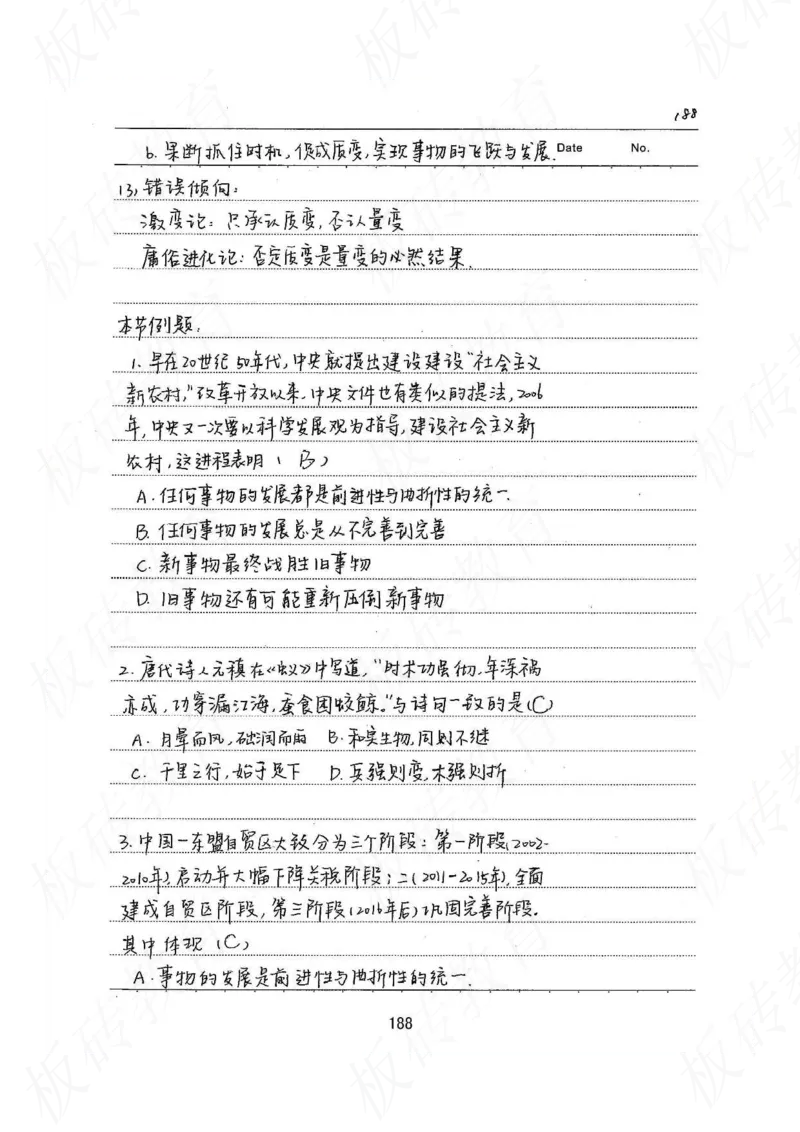 188
6. 果断抓住时机,促成质变,实现事物的飞跃与发展. Date No.
13) 错误倾向:
激变论: 只承认质变,否认量变
庸俗进化论: 否定质变是量变的必然结果.
本节例题:
1. 早在20世纪50年代,中央就提出建设建设"社会主义
新农村,"改革开放以来,中央文件也有类似的提法,2006
年,中央又一次要以科学发展观为指导,建设社会主义新
农村,这进程表明(B)
A. 任何事物的发展都是前进性与曲折性的统一.
B. 任何事物的发展总是从不完善到完善
C. 新事物最终战胜旧事物
D. 旧事物还有可能重新压倒新事物
2. 唐代诗人元稹在《蚁》中写道,"时术功虽彻,年深祸
亦成,功穿漏江海,蚕食困蛟鲸."与诗句一致的是(C)
A. 月晕而风,础润而雨 B. 和实生物,同则不继
C. 千里之行,始于足下 D. 兵强则变,木强则折
3. 中国一东盟自贸区大致分为三个阶段: 第一阶段(2002-
2010年)启动并大幅下降关税阶段;二(2011-2015年),全面
建成自贸区阶段,第三阶段(2016年后)巩固完善阶段.
其中体现(C)
A. 事物的发展是前进性与曲折性的统一.
188
板砖教育